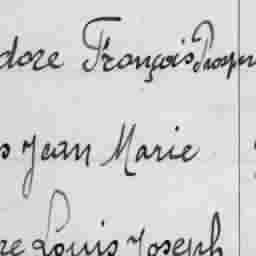 dore François Prosper
s Jean Marie
re Louis Joseph